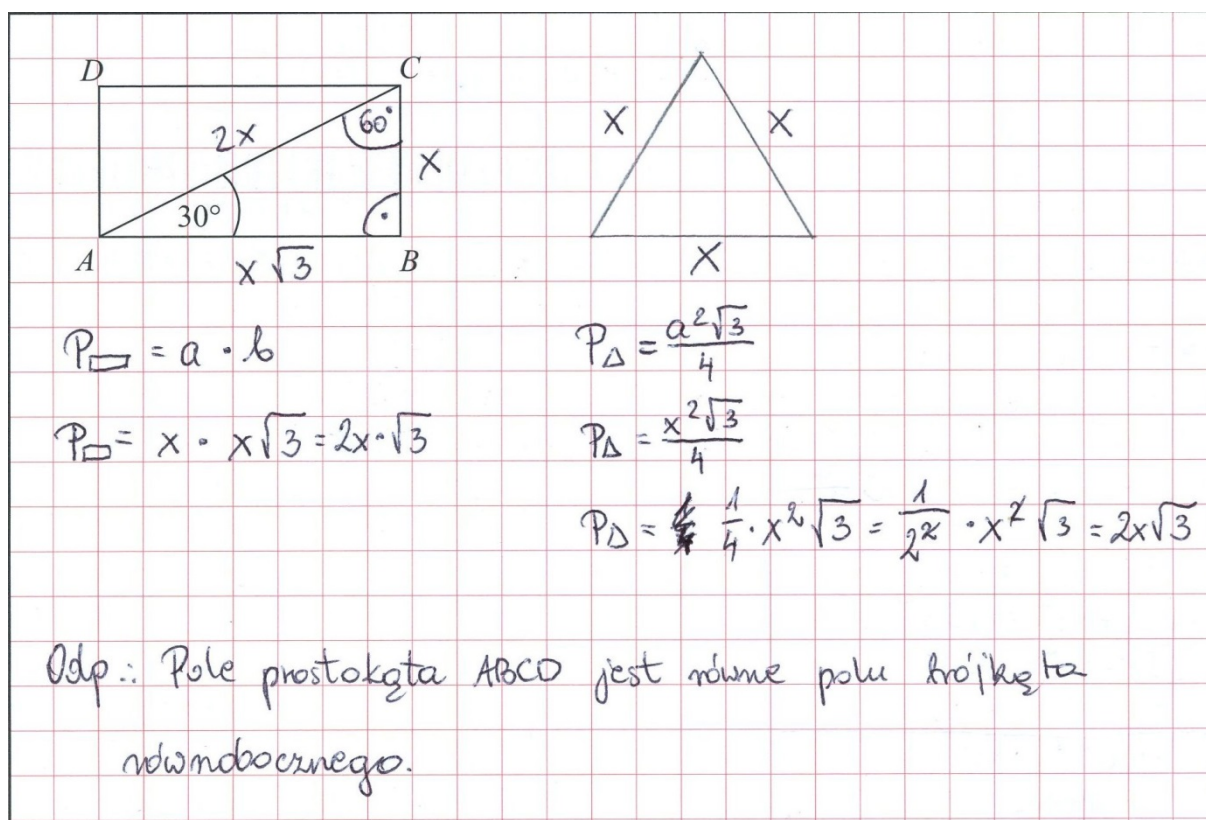 D C
2x 60°
x
30°
A x√3 B
x x
x
P▭ = a · b
P▭ = x · x√3 = 2x·√3
P△ = a²√3/4
P△ = x²√3/4
P△ = 1/4 · x²√3 = 1/2² · x²√3 = 2x√3
Odp.: Pole prostokąta ABCD jest równe polu trójkąta
równobocznego.